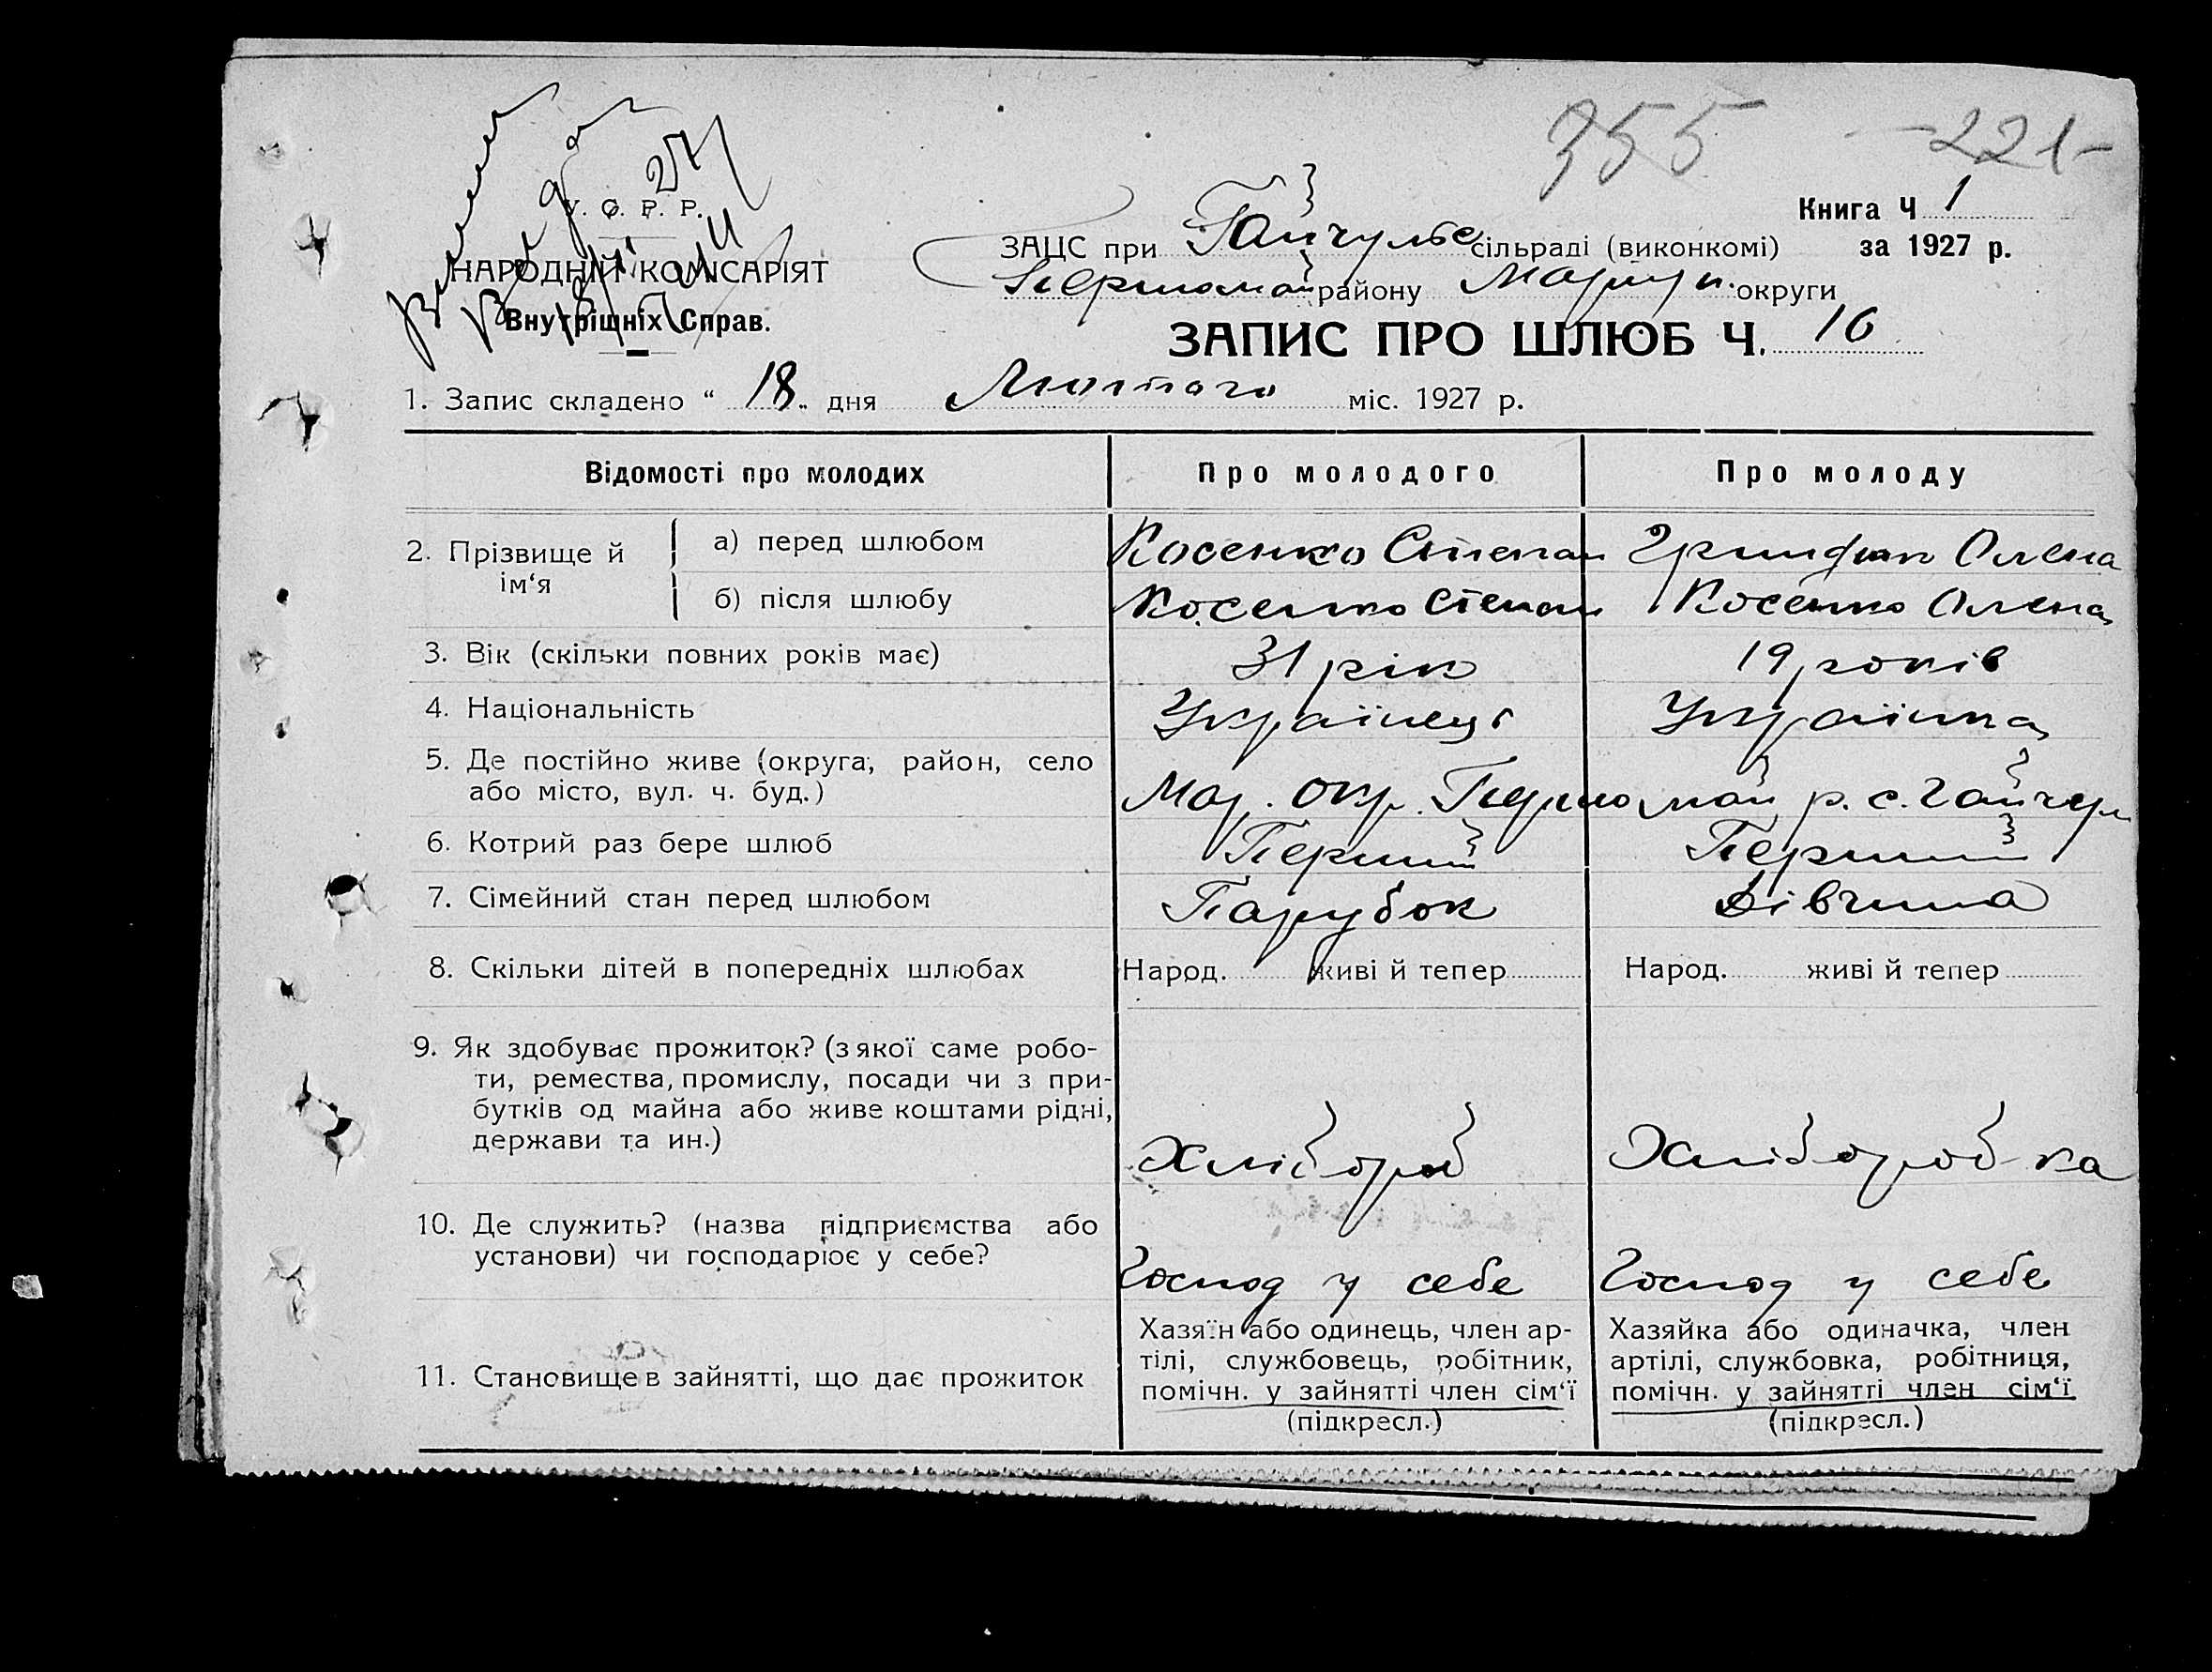 355 -221-
У. С. Р. Р.
НАРОДНІЙ КОМІСАРІЯТ
Внутрішніх Справ.
Книга Ч 1
за 1927 р.
ЗАЦС при Гайчульс сільраді (виконкомі)
Першомай району Маріуп. округи
ЗАПИС ПРО ШЛЮБ Ч. 10
1. Запис складено “ 18 „ дня Лютого міс. 1927 р.
Відомості про молодих Про молодого Про молоду
2. Прізвище й ім‘я
а) перед шлюбом Косенко Степан Олена
б) після шлюбу Косенко Степан Косенко Олена
3. Вік (скільки повних років має) 31 рік 19 років
4. Національність Українець Українка
5. Де постійно живе (округа, район, село
або місто, вул. ч. буд.) Мар. окр. Першомай р. с. Гайчул
6. Котрий раз бере шлюб Перший Перший
7. Сімейний стан перед шлюбом Парубок Дівчина
8. Скільки дітей в попередніх шлюбах Народ. живі й тепер Народ. живі й тепер
9. Як здобуває прожиток? (з якої саме робо-
ти, ремества, промислу, посади чи з при-
бутків од майна або живе коштами рідні,
держави та ин.) Хлібороб Хлібороб-ка
10. Де служить? (назва підприємства або
установи) чи господарює у себе? Господ у себе Господ у себе
11. Становище в зайнятті, що дає прожиток
Хазяїн або одинець, член ар-
тілі, службовець, робітник,
помічн. у зайнятті член сім‘ї
(підкресл.)
Хазяйка або одиначка, член
артілі, службовка, робітниця,
помічн. у зайнятті член сім‘ї
(підкресл.)